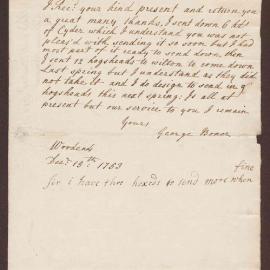 I Rec.d your kind present and return you
a great many thanks. I sent down 6 hd.s
of Cyder which I understand you was not
pleas'd with sending it so soon but I had
most part of it ready to send down, then
I sent 12 hogsheads to wilton to come down
Last spring but I understand as they did
not take it and I do design to send in 9
hogsheads this next spring: Is all at
present but our service to you I remain
Yours
George Boner
Woodend
Dec.r 18th 1753
fine
sir i have thre hoxeds to send more when